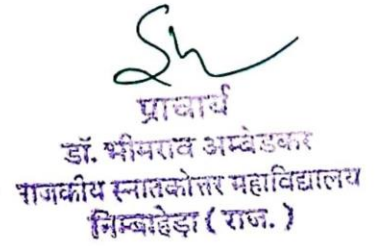 प्राचार्य
डॉ. भीमराव अम्बेडकर
राजकीय स्नातकोत्तर महाविद्यालय
निम्बाहेड़ा ( राज. )